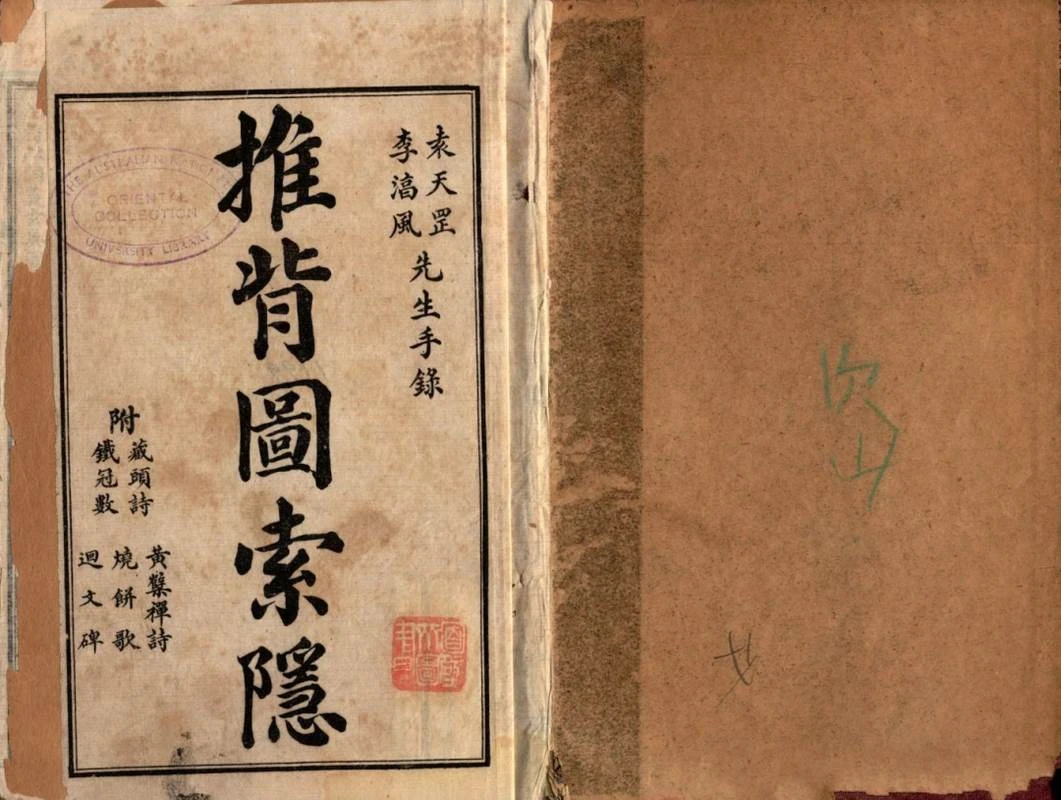 袁天罡
李淳風
先生手錄
推背圖索隱
附
藏頭詩
鐵冠數
黃蘗禪詩
燒餅歌
迴文碑
THE AUSTRALIAN NATIONAL
ORIENTAL
COLLECTION
UNIVERSITY LIBRARY